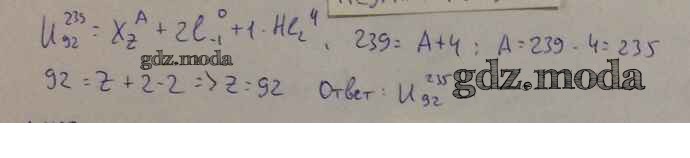 U₉₂²³⁵ = X_Z^A + 2e₋₁⁰ + 1·He₂⁴, 239 = A+4; A = 239 - 4 = 235
gdz.moda
92 = Z + 2 - 2 => Z = 92 Ответ: U₉₂²³⁵
gdz.moda